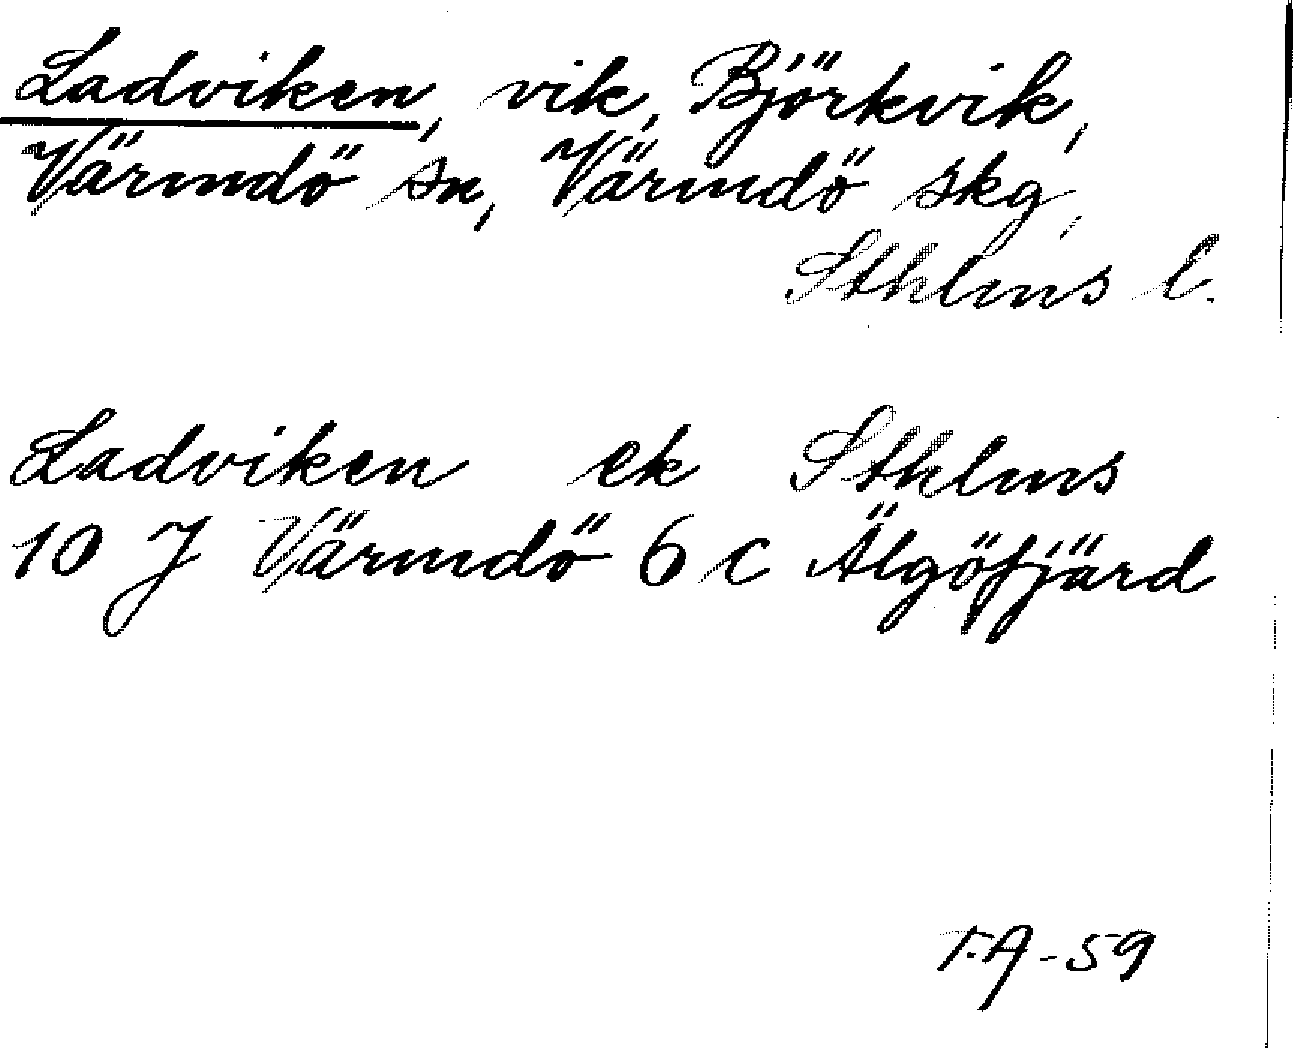 Ladviken, vik, Björkvik,
Värmdö sn, Värmdö skg,
Sthlms l.
Ladviken ek Sthlms
10 J Värmdö 6 c Älgöfjärd
F.A-59